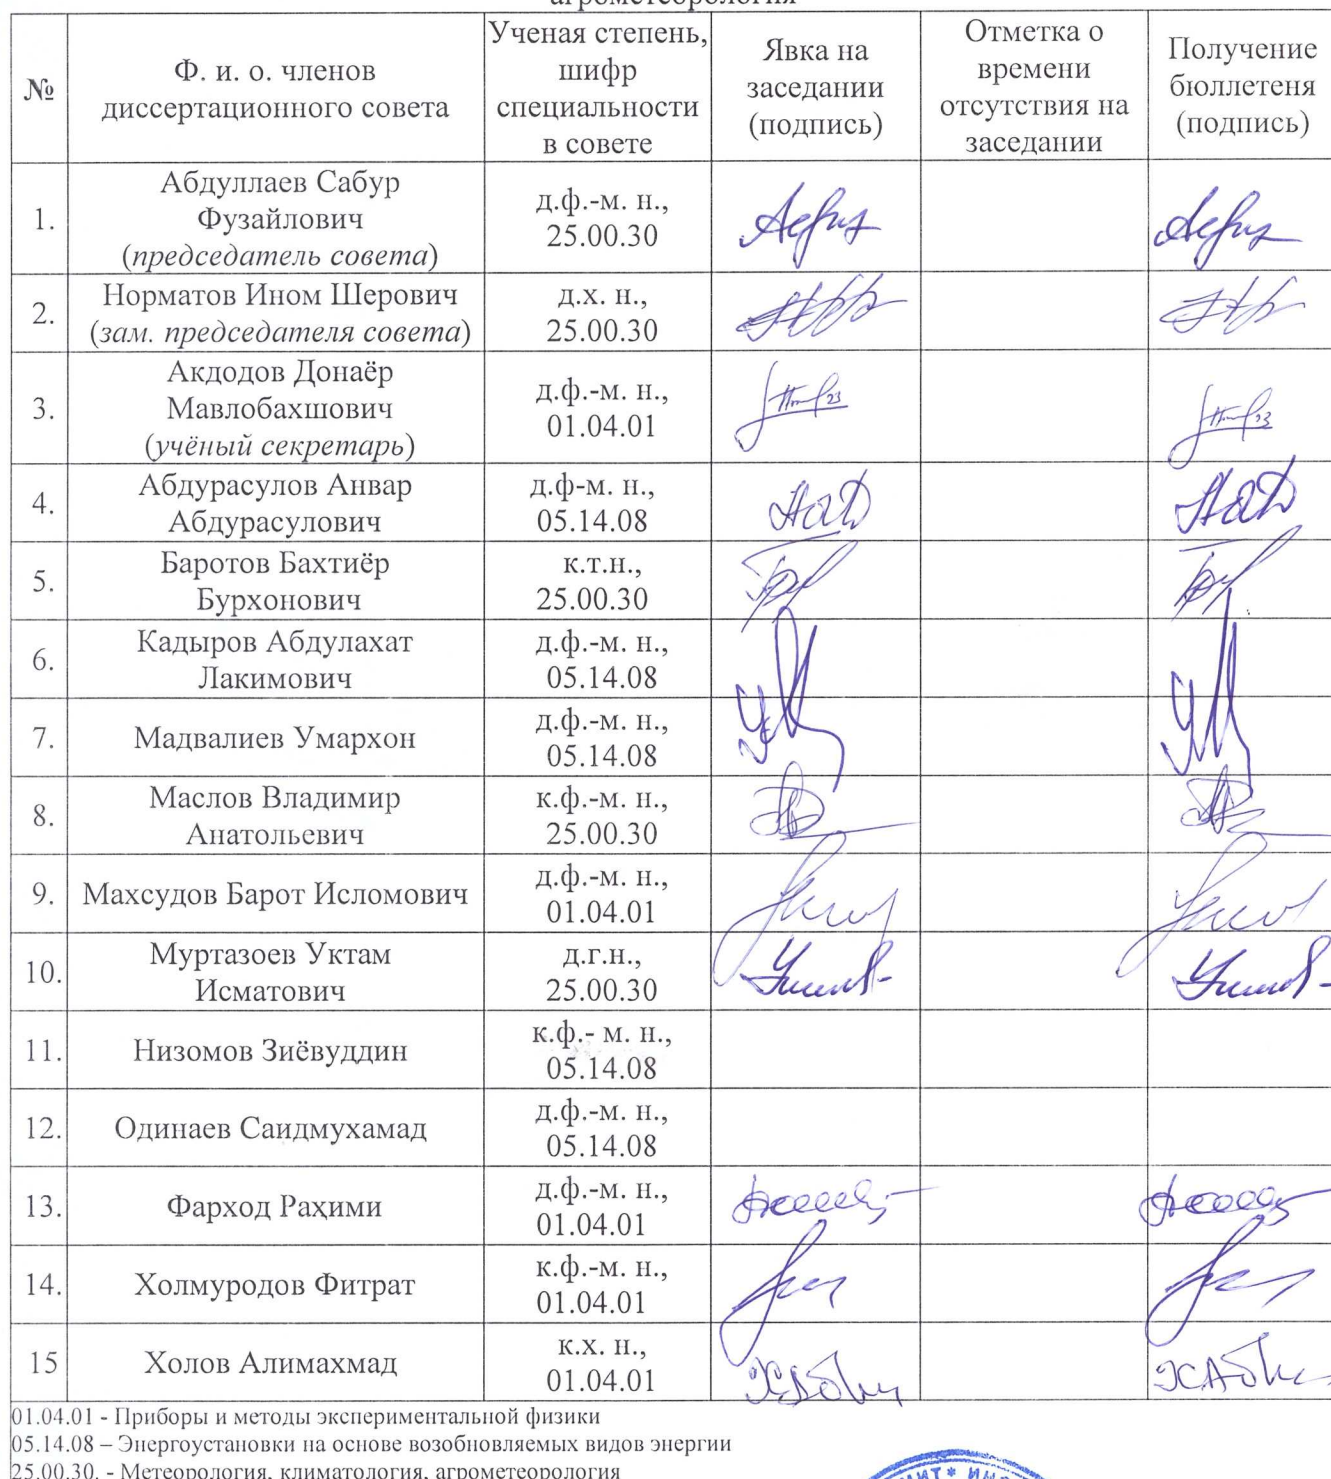 агрометеорология
№
Ф. и. о. членов
диссертационного совета
Ученая степень,
шифр
специальности
в совете
Явка на
заседании
(подпись)
Отметка о
времени
отсутствия на
заседании
Получение
бюллетеня
(подпись)
1.
Абдуллаев Сабур
Фузайлович
(председатель совета)
д.ф.-м. н.,
25.00.30
2.
Норматов Ином Шерович
(зам. председателя совета)
д.х. н.,
25.00.30
3.
Акдодов Донаёр
Мавлобахшович
(учёный секретарь)
д.ф.-м. н.,
01.04.01
4.
Абдурасулов Анвар
Абдурасулович
д.ф-м. н.,
05.14.08
5.
Баротов Бахтиёр
Бурхонович
к.т.н.,
25.00.30
6.
Кадыров Абдулахат
Лакимович
д.ф.-м. н.,
05.14.08
7.
Мадвалиев Умархон
д.ф.-м. н.,
05.14.08
8.
Маслов Владимир
Анатольевич
к.ф.-м. н.,
25.00.30
9.
Махсудов Барот Исломович
д.ф.-м. н.,
01.04.01
10.
Муртазоев Уктам
Исматович
д.г.н.,
25.00.30
11.
Низомов Зиёвуддин
к.ф.- м. н.,
05.14.08
12.
Одинаев Саидмухамад
д.ф.-м. н.,
05.14.08
13.
Фарход Раҳими
д.ф.-м. н.,
01.04.01
14.
Холмуродов Фитрат
к.ф.-м. н.,
01.04.01
15
Холов Алимахмад
к.х. н.,
01.04.01
01.04.01 - Приборы и методы экспериментальной физики
05.14.08 – Энергоустановки на основе возобновляемых видов энергии
25.00.30. - Метеорология, климатология, агрометеорология